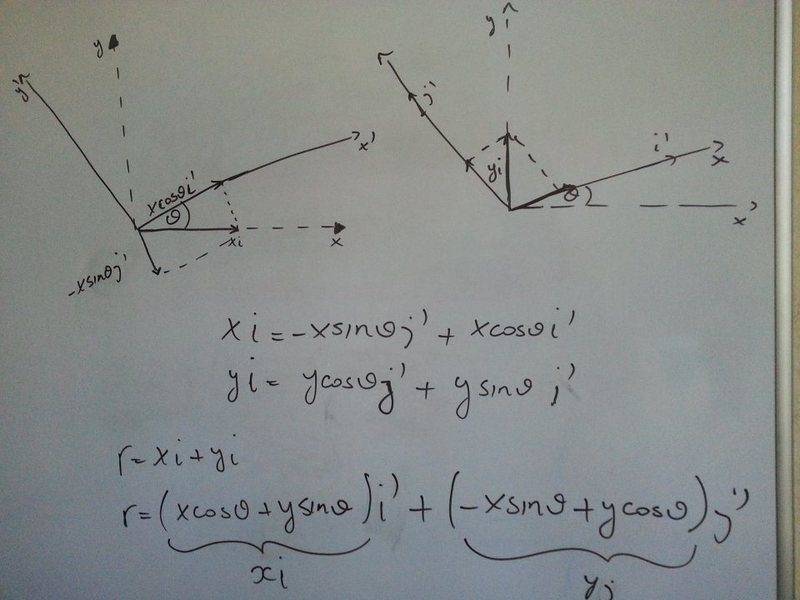 y
y'
x'
xcosθi'
θ
xi
x
-xsinθj'
y
j'
yi
i'
x
θ
x'
xi = -xsinθj' + xcosθi'
yi = ycosθj' + ysinθ j'
r = xi + yi
r = (xcosθ + ysinθ)i' + (-xsinθ + ycosθ)j'
xi
yj